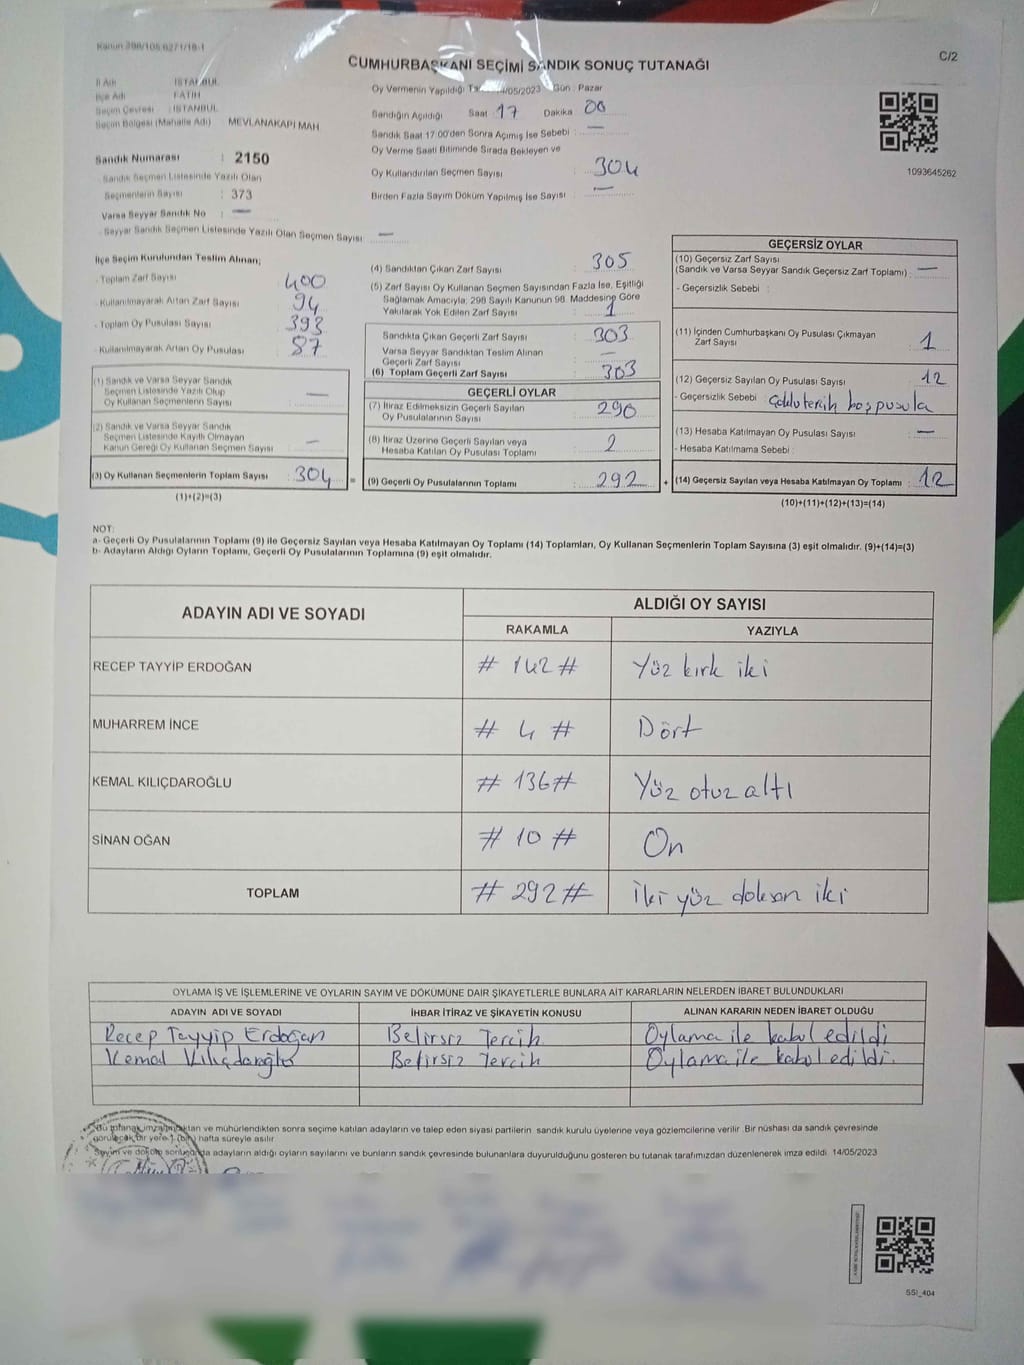 Kanun 298/105,6271/18-1
C/2
CUMHURBAŞKANI SEÇİMİ SANDIK SONUÇ TUTANAĞI
İl Adı : İSTANBUL
İlçe Adı : FATİH
Seçim Çevresi : İSTANBUL
Seçim Bölgesi (Mahalle Adı) MEVLANAKAPI MAH
Sandık Numarası : 2150
Sandık Seçmen Listesinde Yazılı Olan
Seçmenlerin Sayısı : 373
Varsa Seyyar Sandık No : —
Seyyar Sandık Seçmen Listesinde Yazılı Olan Seçmen Sayısı : —
Oy Vermenin Yapıldığı /05/2023 Gün : Pazar
Sandığın Açıldığı Saat 17 Dakika 00
Sandık Saat 17:00'den Sonra Açılmış İse Sebebi : —
Oy Verme Saati Bitiminde Sırada Bekleyen ve
Oy Kullandırılan Seçmen Sayısı : 304
Birden Fazla Sayım Döküm Yapılmış İse Sayısı : —
1093645262
İlçe Seçim Kurulundan Teslim Alınan;
- Toplam Zarf Sayısı : 400
- Kullanılmayarak Artan Zarf Sayısı : 94
- Toplam Oy Pusulası Sayısı : 393
- Kullanılmayarak Artan Oy Pusulası : 87
(1) Sandık ve Varsa Seyyar Sandık
Seçmen Listesinde Yazılı Olup
Oy Kullanan Seçmenlerin Sayısı : —
(2) Sandık ve Varsa Seyyar Sandık
Seçmen Listesinde Kayıtlı Olmayan
Kanun Gereği Oy Kullanan Seçmen Sayısı : —
(3) Oy Kullanan Seçmenlerin Toplam Sayısı : 304
(1)+(2)=(3)
(4) Sandıktan Çıkan Zarf Sayısı : 305
(5) Zarf Sayısı Oy Kullanan Seçmen Sayısından Fazla İse, Eşitliği
Sağlamak Amacıyla, 298 Sayılı Kanunun 98. Maddesine Göre
Yakılarak Yok Edilen Zarf Sayısı : 1
Sandıkta Çıkan Geçerli Zarf Sayısı : 303
Varsa Seyyar Sandıktan Teslim Alınan
Geçerli Zarf Sayısı : —
(6) Toplam Geçerli Zarf Sayısı : 303
GEÇERLİ OYLAR
(7) İtiraz Edilmeksizin Geçerli Sayılan
Oy Pusulalarının Sayısı : 290
(8) İtiraz Üzerine Geçerli Sayılan veya
Hesaba Katılan Oy Pusulası Toplamı : 2
= (9) Geçerli Oy Pusulalarının Toplamı : 292 +
GEÇERSİZ OYLAR
(10) Geçersiz Zarf Sayısı
(Sandık ve Varsa Seyyar Sandık Geçersiz Zarf Toplamı) : —
- Geçersizlik Sebebi :
(11) İçinden Cumhurbaşkanı Oy Pusulası Çıkmayan
Zarf Sayısı : 1
(12) Geçersiz Sayılan Oy Pusulası Sayısı : 12
- Geçersizlik Sebebi : Çoklu tercih boş pusula
(13) Hesaba Katılmayan Oy Pusulası Sayısı : —
- Hesaba Katılmama Sebebi :
(14) Geçersiz Sayılan veya Hesaba Katılmayan Oy Toplamı : 12
(10)+(11)+(12)+(13)=(14)
NOT:
a- Geçerli Oy Pusulalarının Toplamı (9) ile Geçersiz Sayılan veya Hesaba Katılmayan Oy Toplamı (14) Toplamları, Oy Kullanan Seçmenlerin Toplam Sayısına (3) eşit olmalıdır. (9)+(14)=(3)
b- Adayların Aldığı Oyların Toplamı, Geçerli Oy Pusulalarının Toplamına (9) eşit olmalıdır.
ADAYIN ADI VE SOYADI ALDIĞI OY SAYISI
RAKAMLA YAZIYLA
RECEP TAYYİP ERDOĞAN # 142 # Yüz kırk iki
MUHARREM İNCE # 4 # Dört
KEMAL KILIÇDAROĞLU # 136 # Yüz otuz altı
SİNAN OĞAN # 10 # On
TOPLAM # 292 # İki yüz doksan iki
OYLAMA İŞ VE İŞLEMLERİNE VE OYLARIN SAYIM VE DÖKÜMÜNE DAİR ŞİKAYETLERLE BUNLARA AİT KARARLARIN NELERDEN İBARET BULUNDUKLARI
ADAYIN ADI VE SOYADI İHBAR İTİRAZ VE ŞİKAYETİN KONUSU ALINAN KARARIN NEDEN İBARET OLDUĞU
Recep Tayyip Erdoğan Belirsiz Tercih Oylama ile kabul edildi
Kemal Kılıçdaroğlu Belirsiz Tercih Oylama ile kabul edildi.
Bu tutanak imzalandıktan ve mühürlendikten sonra seçime katılan adayların ve talep eden siyasi partilerin sandık kurulu üyelerine veya gözlemcilerine verilir. Bir nüshası da sandık çevresinde
görülecek bir yere 1 (bir) hafta süreyle asılır.
Sayım ve döküm sonucunda adayların aldığı oyların sayılarını ve bunların sandık çevresinde bulunanlara duyurulduğunu gösteren bu tutanak tarafımızdan düzenlenerek imza edildi. 14/05/2023
SSI_404